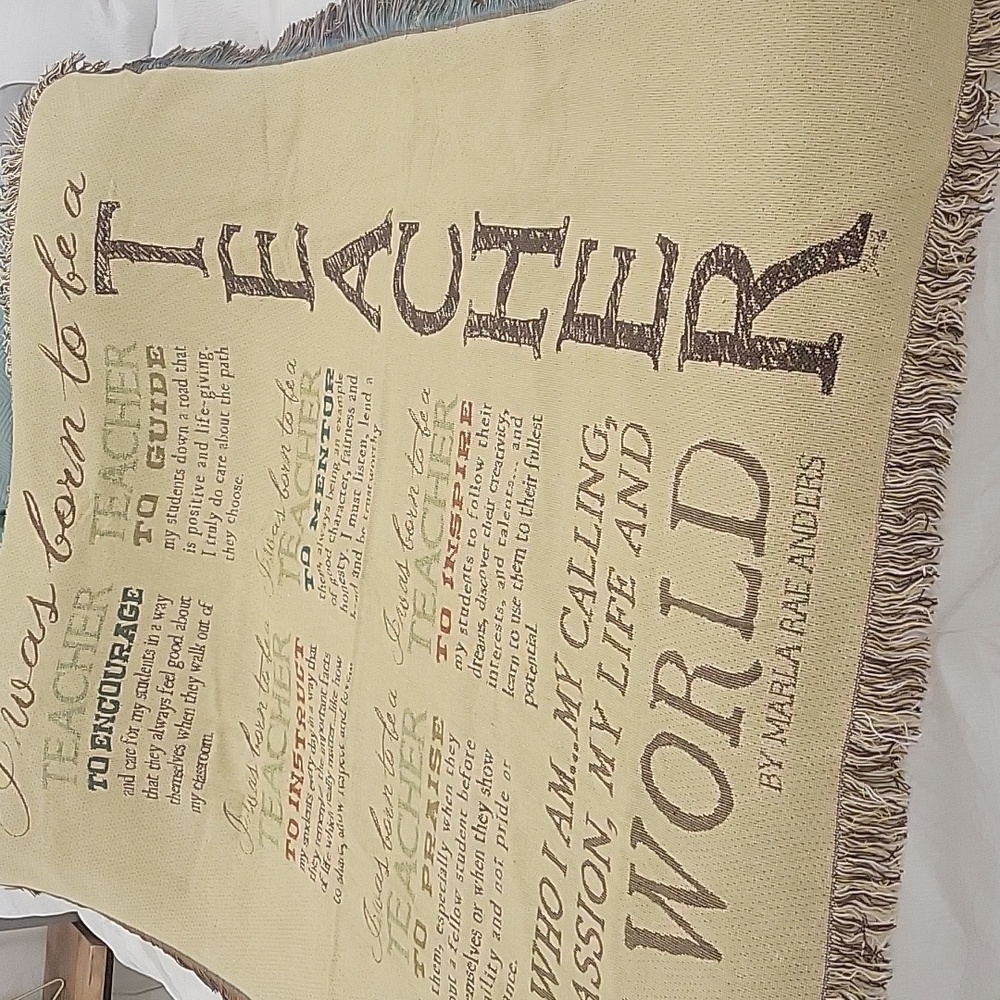 I was born to be a
TEACHER
TO ENCOURAGE
and care for my students in a way
that they always feel good about
themselves when they walk out of
my classroom.
TEACHER
TO GUIDE
my students down a road that
is positive and life-giving.
I truly do care about the path
they choose.
I was born to be a
TEACHER
TO INSTRUCT
my students every day in a way that
they remember the important facts
of life which really matter, like how
to share, show respect and love...
I was born to be a
TEACHER
TO MENTOR
them, always being an example
of good character, fairness and
honesty. I must listen, lend a
hand and be trustworthy
I was born to be a
TEACHER
TO PRAISE
them, especially when they
a fellow student before
emselves or when they show
ility and not pride or
ance.
I was born to be a
TEACHER
TO INSPIRE
my students to follow their
dreams, discover their creativity,
interests, and talents... and
learn to use them to their fullest
potential.
WHO I AM...MY CALLING,
ASSION, MY LIFE AND
WORLD
BY MARLA RAE ANDERS
TEACHER